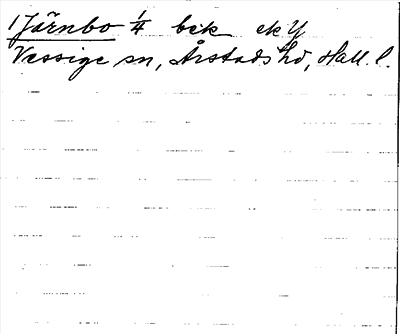 1 Järnbo 1/4 bek ek Y
Vessige sn, Årstads hd, Hall. l.